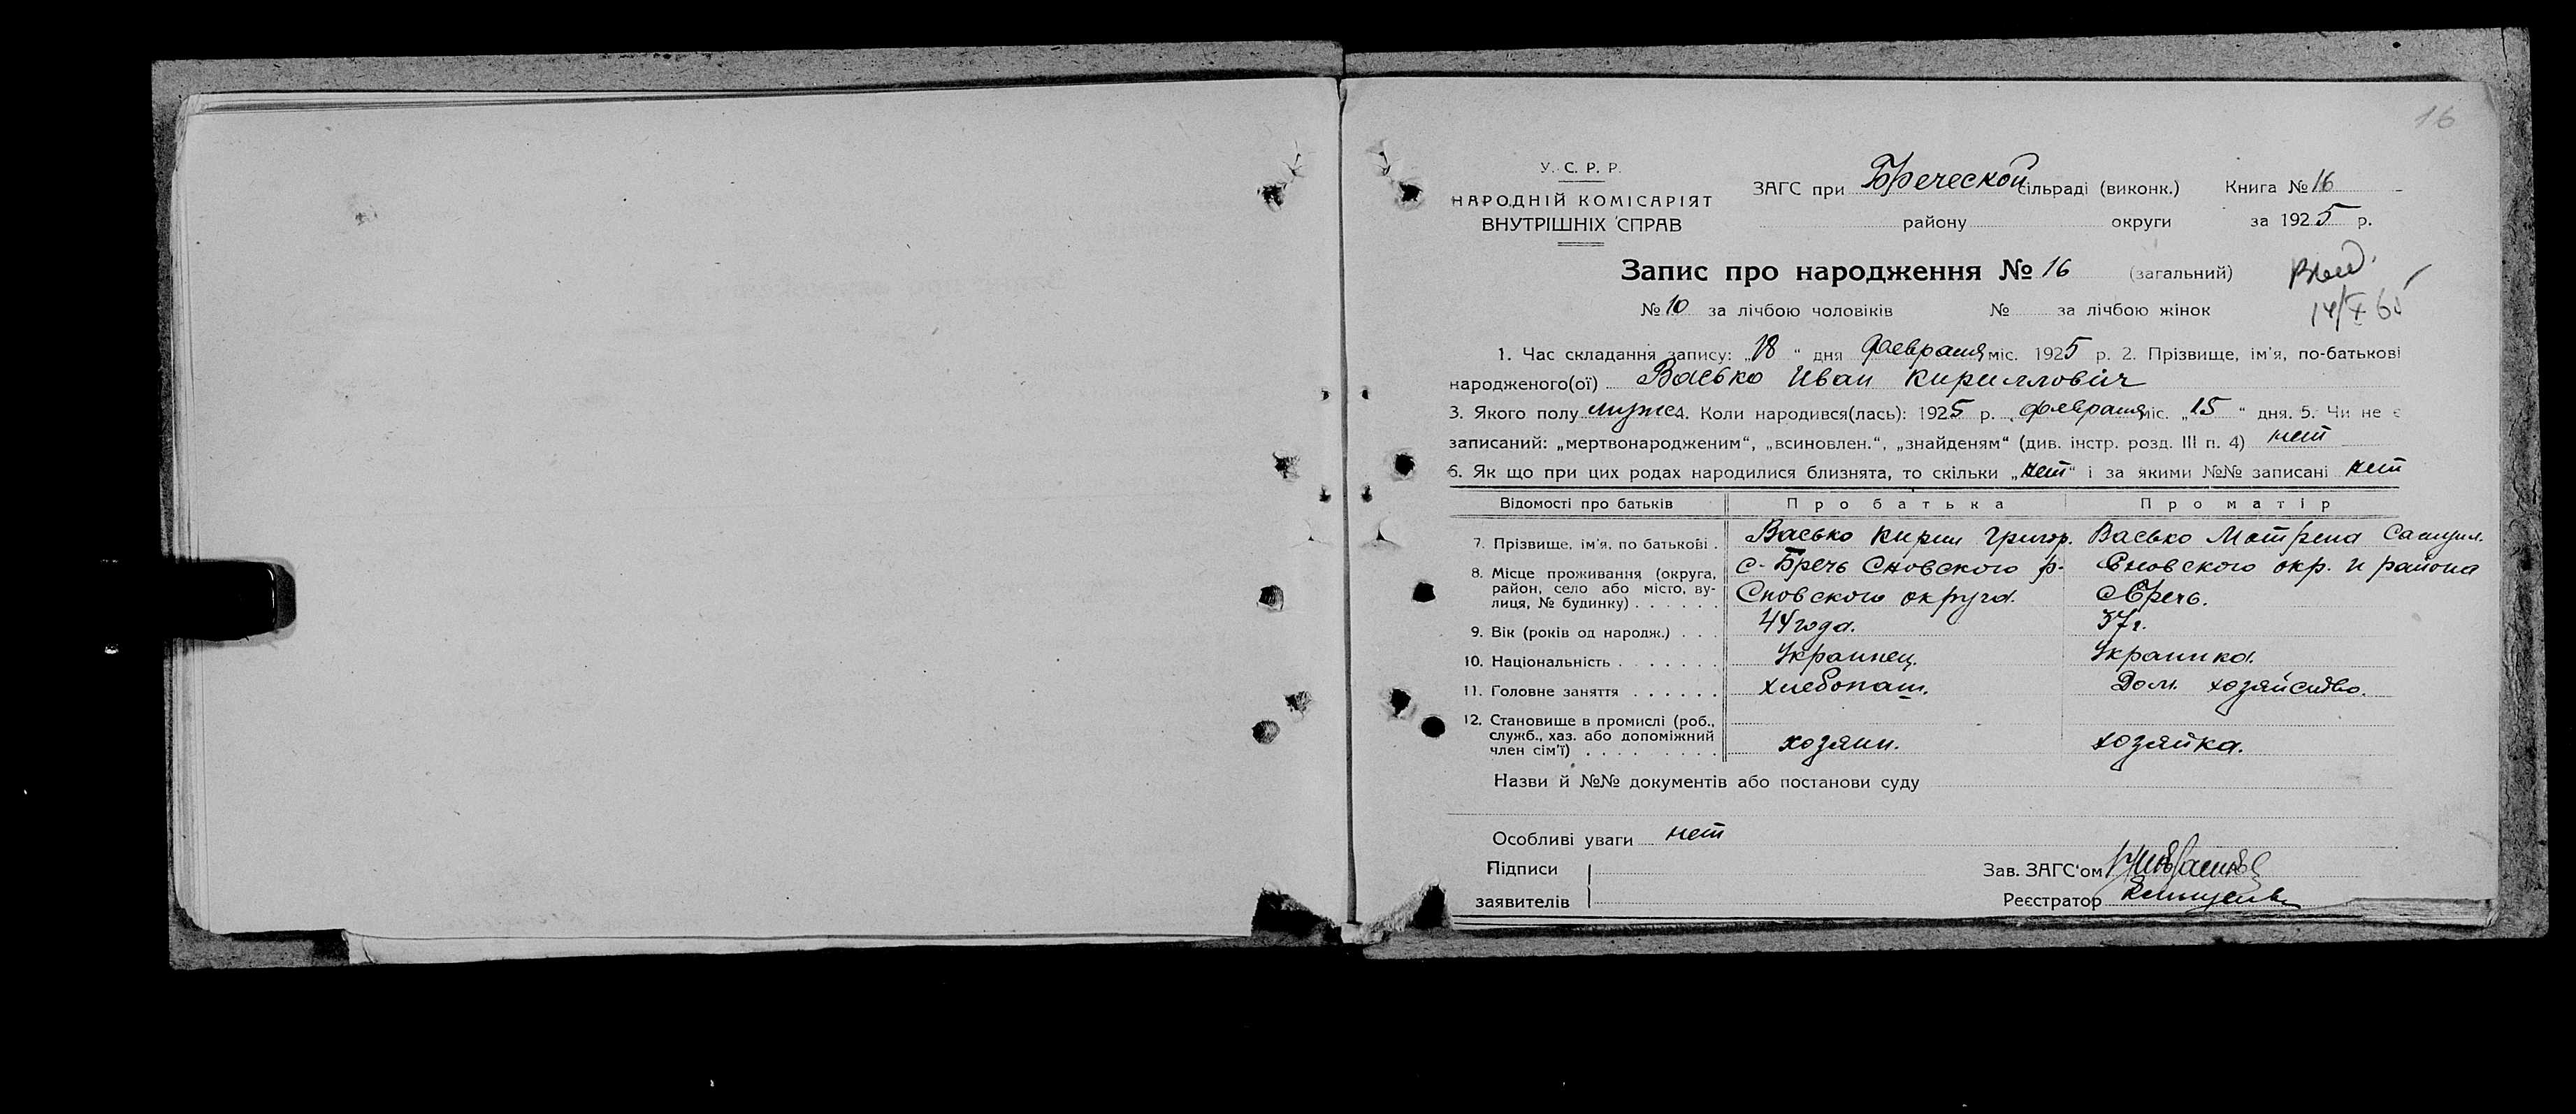 16
У. С. Р. Р.
НАРОДНІЙ КОМІСАРІЯТ
ВНУТРІШНІХ СПРАВ
ЗАГС при Бреческой сільраді (виконк.) Книга № 16
району округи за 1925 р.
Запис про народження № 16 (загальний)
№ 10 за лічбою чоловіків № за лічбою жінок
14/X 65
1. Час складання запису: „18“ дня февраля міс. 1925 р. 2. Прізвище, ім'я, по-батькові
народженого(ої) Васько Иван Кириллович
3. Якого полу мужс 4. Коли народився(лась): 1925 р. февраля міс. „15“ дня. 5. Чи не є
записаний: „мертвонародженим“, „всиновлен.“, „знайденям“ (див. інстр. розд. III п. 4) нет
6. Як що при цих родах народилися близнята, то скільки „нет“ і за якими №№ записані нет
Відомості про батьків Про батька Про матір
7. Прізвище, ім'я, по батькові . Васько Кирил Григор. Васько Матрена Самуил.
8. Місце проживання (округа, район, село або місто, вулиця, № будинку) . . . . . . с. Бречь Сновского р. Сновского округа. Сновского окр. и района с Бречь.
9. Вік (років од народж.) . . . 44 года. 37 г.
10. Національність . . . . . . . Украинец. Украинка.
11. Головне заняття . . . . . . хлебопаш. Дом. хозяйство.
12. Становище в промислі (роб., служб., хаз. або допоміжний член сім'ї) . . . . . . . . . хозяин. хозяйка.
Назви й №№ документів або постанови суду
Особливі уваги нет
Підписи
заявителів
Зав. ЗАГС'ом
Реєстратор